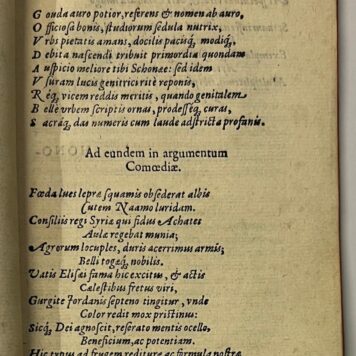 Gouda auro potior, referens & nomen ab auro,
Officiosa bonis, studiorum sedula nutrix,
Vrbs pietatis amans, docilis pacisq́, modiq́,
Debita nascendi tribuit primordia quondam
Auspicio meliore tibi Schonæe: sed idem
Vsuram lucis genitrici ritè reponis,
Req́, vicem reddis meritis, quando genitalem
Belle vrbem scriptis ornas, prodesseq́, curas,
Sacraq́, das numeris cum laude adstricta profanis.
Ad eundem in argumentum
Comœdiæ.
Fœda lues lepræ squamis obsederat albis
Cutem Naamo luridam.
Consiliis regi Syriæ qui fidus Achates
Aulæ regebat munia;
Agrorum locuples, duris acerrimus armis;
Belli togæq́, nobilis.
Vatis Elisæi fama hic excitus, & actis
Cælestibus fretus viri,
Gurgite Jordanis septeno tingitur, vnde
Color redit mox pristinus:
Sicq́, Dei agnoscit, reserato mentis ocello,
Beneficium, ac potentiam.
Hic typus ad frugem rediture ac formula nostræ